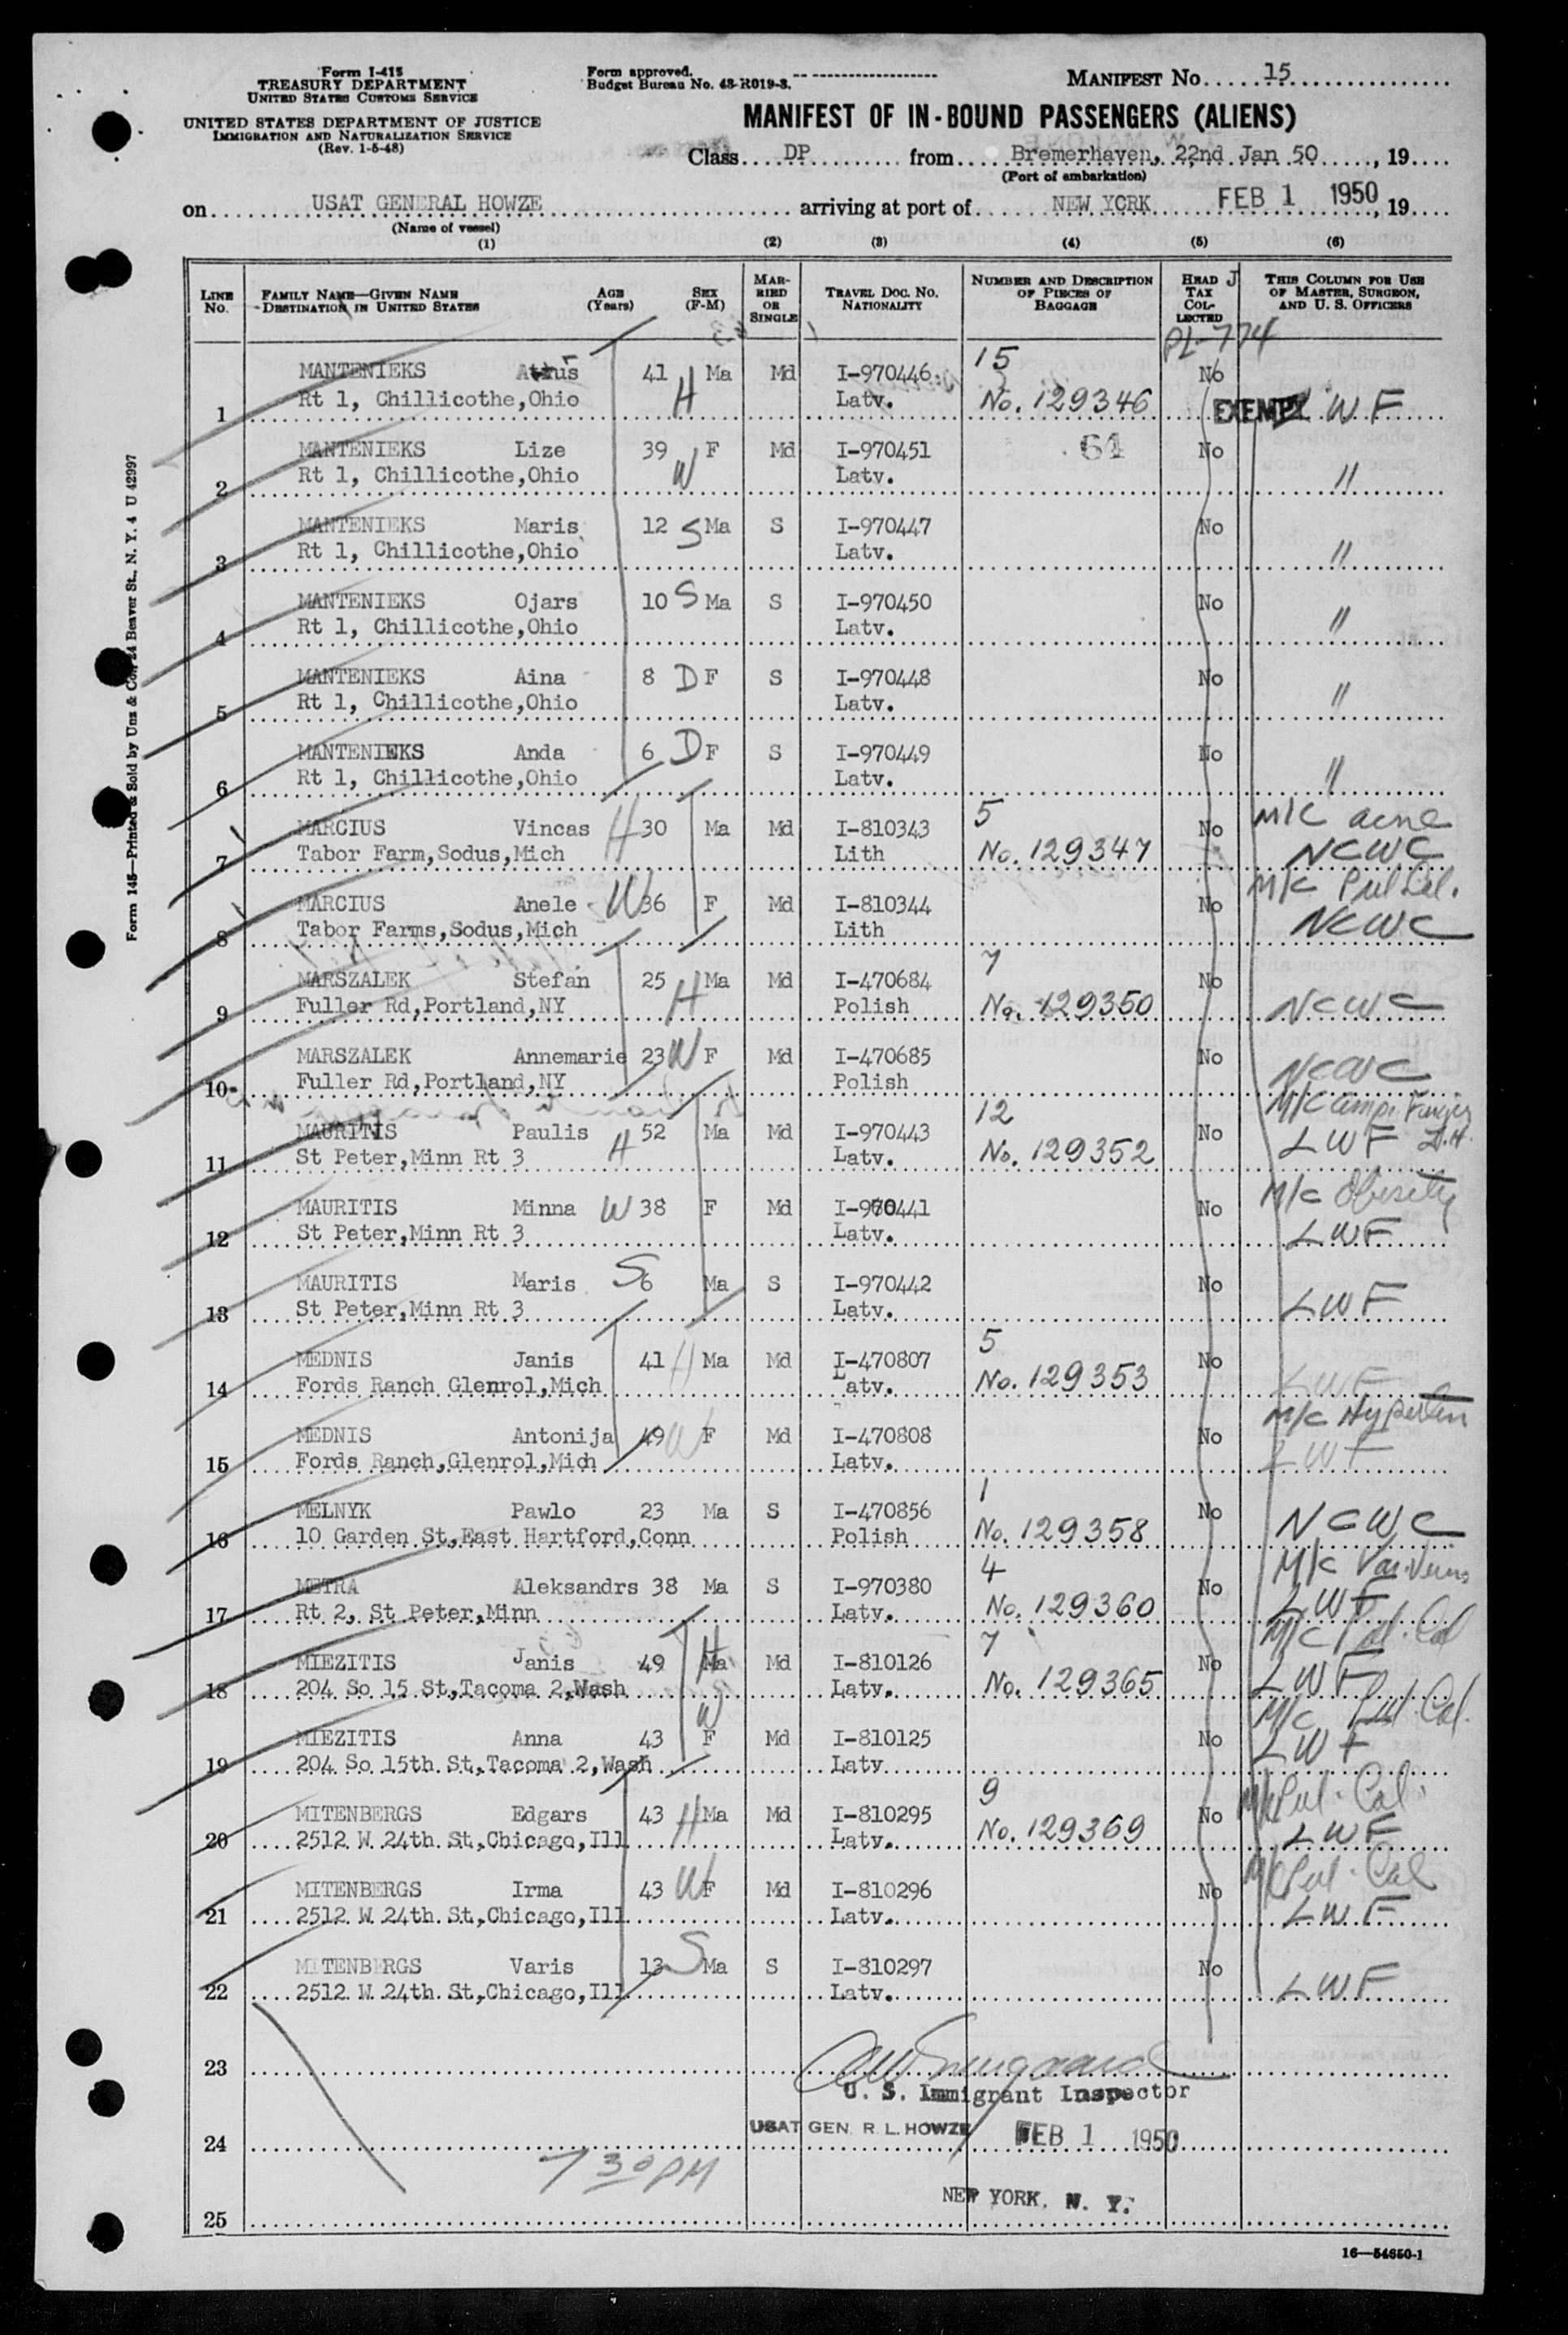 Form I-415
TREASURY DEPARTMENT
UNITED STATES CUSTOMS SERVICE
UNITED STATES DEPARTMENT OF JUSTICE
IMMIGRATION AND NATURALIZATION SERVICE
(Rev. 1-5-48)
Form approved.
Budget Bureau No. 43-R019-3.
MANIFEST No. 15
MANIFEST OF IN-BOUND PASSENGERS (ALIENS)
Class DP from Bremerhaven, 22nd Jan 50, 19
(Port of embarkation)
on USAT GENERAL HOWZE arriving at port of NEW YORK FEB 1 1950, 19
(Name of vessel)
(1) (2) (3) (4) (5) (6)
LINE No. FAMILY NAME—GIVEN NAME DESTINATION IN UNITED STATES AGE (Years) SEX (F-M) MARRIED OR SINGLE TRAVEL DOC. NO. NATIONALITY NUMBER AND DESCRIPTION OF PIECES OF BAGGAGE HEAD TAX COLLECTED THIS COLUMN FOR USE OF MASTER, SURGEON, AND U. S. OFFICERS
PL-774
MANTENIEKS 41 Ma Md I-970446 15 No
1 Rt 1, Chillicothe,Ohio H Latv. No. 129346 EXEMPT W F
MANTENIEKS Lize 39 F Md I-970451 61 No
2 Rt 1, Chillicothe,Ohio W Latv. "
MANTENIEKS Maris 12 S Ma S I-970447 No
3 Rt 1, Chillicothe,Ohio Latv. "
MANTENIEKS Ojars 10 S Ma S I-970450 No
4 Rt 1, Chillicothe,Ohio Latv. "
MANTENIEKS Aina 8 D F S I-970448 No
5 Rt 1, Chillicothe,Ohio Latv. "
MANTENIEKS Anda 6 D F S I-970449 No
6 Rt 1, Chillicothe,Ohio Latv. "
MARCIUS Vincas H 30 Ma Md I-810343 5 No M/C acne
7 Tabor Farm,Sodus,Mich Lith No. 129347 NCWC
MARCIUS Anele W 36 F Md I-810344 No M/C Pul Cal.
8 Tabor Farms,Sodus,Mich Lith NCWC
MARSZALEK Stefan 25 Ma Md I-470684 7 No
9 Fuller Rd,Portland,NY H Polish No. 129350 NCWC
MARSZALEK Annemarie 23 W F Md I-470685 No
10 Fuller Rd,Portland,NY Polish NCWC
MAURITIS Paulis 52 Ma Md I-970443 12 No M/C amp. Finger
11 St Peter,Minn Rt 3 H Latv. No. 129352 LWF
MAURITIS Minna W 38 F Md I-970441 No M/C Obesity
12 St Peter,Minn Rt 3 Latv. LWF
MAURITIS Maris S 6 Ma S I-970442 No
13 St Peter,Minn Rt 3 Latv. LWF
MEDNIS Janis 41 H Ma Md I-470807 5 No
14 Fords Ranch Glenrol,Mich Latv. No. 129353 LWF
MEDNIS Antonija 49 W F Md I-470808 No M/C Hyperten
15 Fords Ranch,Glenrol,Mich Latv. LWF
MELNYK Pawlo 23 Ma S I-470856 1 No
16 10 Garden St,East Hartford,Conn Polish No. 129358 NCWC
METRA Aleksandrs 38 Ma S I-970380 4 No M/C Var. Veins
17 Rt 2, St Peter,Minn Latv. No. 129360 LWF
MIEZITIS Janis 49 H Ma Md I-810126 7 No M/C Pul. Cal
18 204 So 15 St,Tacoma 2,Wash Latv. No. 129365 LWF
MIEZITIS Anna 43 W F Md I-810125 No M/C Pul. Cal.
19 204 So 15th St,Tacoma 2,Wash Latv LWF
MITENBERGS Edgars 43 H Ma Md I-810295 9 No M/C Pul. Cal.
20 2512 W 24th St,Chicago,Ill Latv. No. 129369 LWF
MITENBERGS Irma 43 W F Md I-810296 No M/C Pul. Cal
21 2512 W 24th St,Chicago,Ill Latv. LWF
MITENBERGS Varis 13 S Ma S I-810297 No
22 2512 W 24th St,Chicago,Ill Latv. LWF
23
U. S. Immigrant Inspector
USAT GEN. R. L. HOWZE FEB 1 1950
24
7 30 PM
NEW YORK, N. Y.
25
16—54650-1
Form 145—Printed & Sold by Unz & Co., 24 Beaver St., N. Y. 4 U 42997